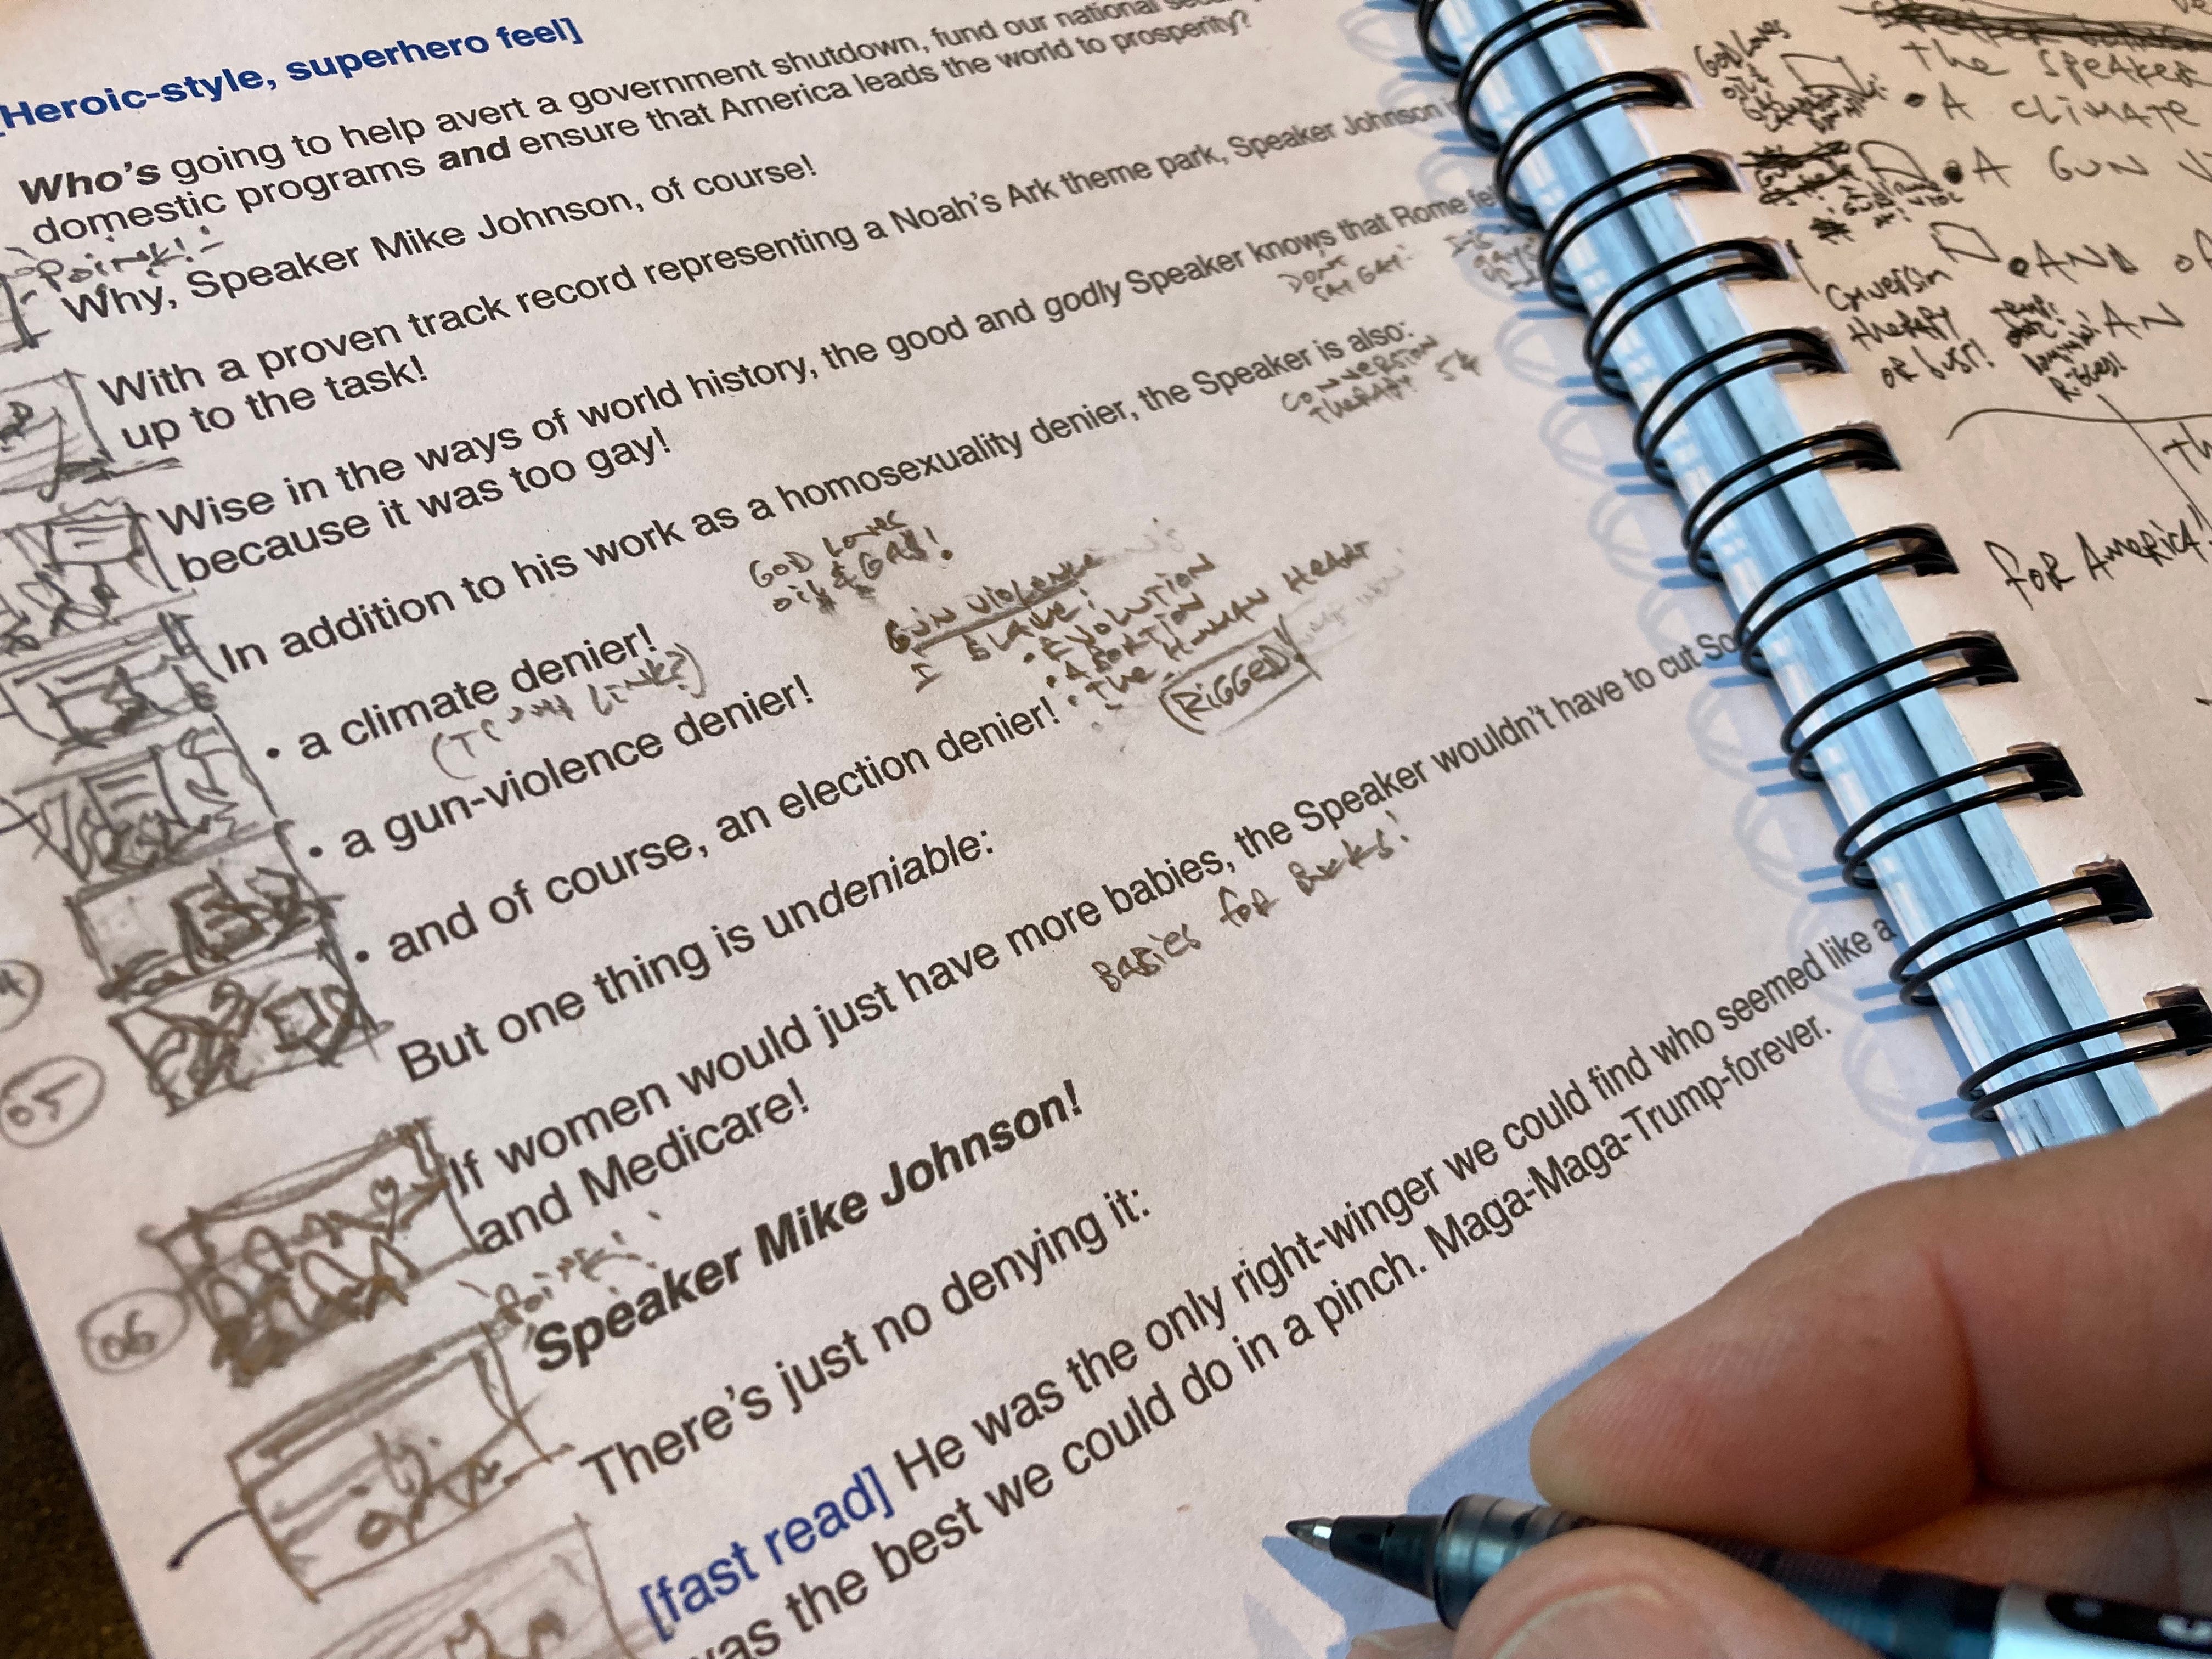 [Heroic-style, superhero feel]
Who's going to help avert a government shutdown, fund our national
domestic programs and ensure that America leads the world to prosperity?
Point!
Why, Speaker Mike Johnson, of course!
With a proven track record representing a Noah's Ark theme park, Speaker Johnson
up to the task!
Wise in the ways of world history, the good and godly Speaker knows that Rome fell
because it was too gay!
DON'T
SAY GAY!
In addition to his work as a homosexuality denier, the Speaker is also:
CONVERSION
THERAPY 5¢
GOD LOVES
OIL & GAS!
• a climate denier!
GUN VIOLENCE
I BLAME:
• EVOLUTION
• ABORTION
• THE HUMAN HEART
• a gun-violence denier!
RIGGED!
• and of course, an election denier!
But one thing is undeniable:
If women would just have more babies, the Speaker wouldn't have to cut So
and Medicare!
BABIES FOR BUCKS!
05
06
Point!
Speaker Mike Johnson!
There's just no denying it:
[fast read] He was the only right-winger we could find who seemed like a
was the best we could do in a pinch. Maga-Maga-Maga-Trump-forever.
GOD LOVES
OIL &
GAS
THE SPEAKER
• A CLIMATE
• A GUN
• AND
AN
CONVERSION
THERAPY
OR BUST!
FOR AMERICA!